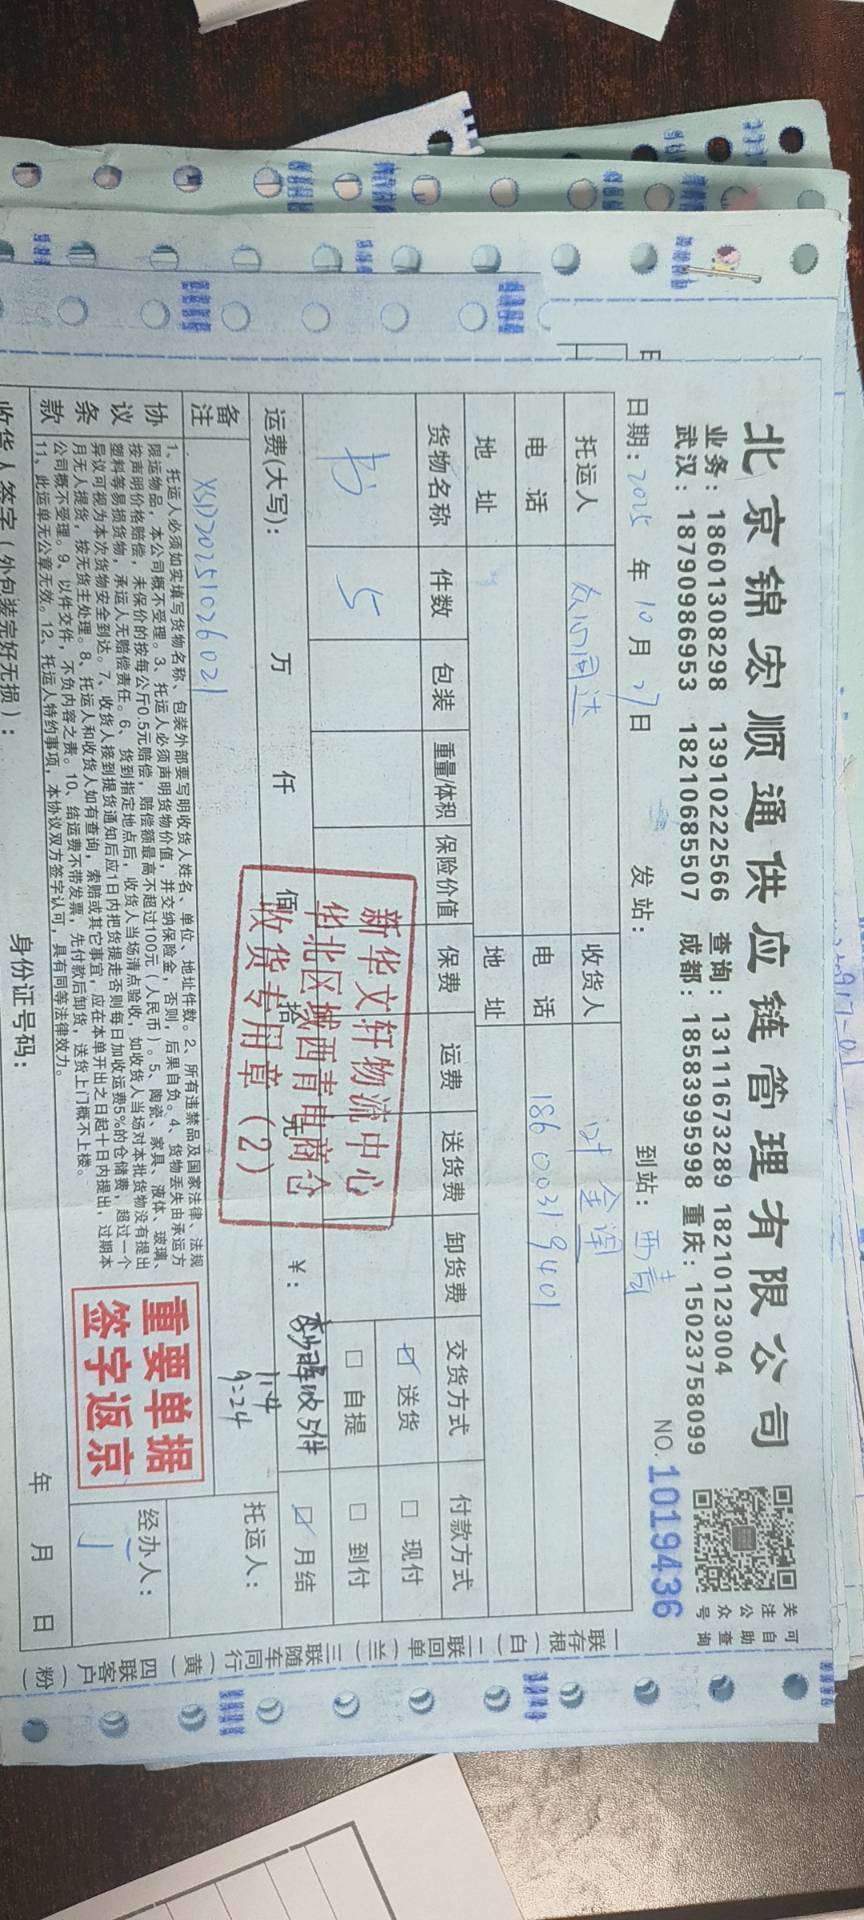 北京锦宏顺通供应链管理有限公司
关注公众号
可自助查询
业务：18601308298 13910222566 查询：13111673289 18210123004
武汉：18790986953 18210685507 成都：18583995998 重庆：15023758099
日期：2025年10月27日 发站： 到站：西青 NO.1019436
托运人 众心同达 收货人 叶金军
电话 电话 18600319401
地址 地址
货物名称 件数 包装 重量/体积 保险价值 保费 运费 送货费 卸货费 交货方式 付款方式
书 5 ☑送货 □现付
□自提 □到付
运费(大写)： 万 仟 佰 拾 元 ￥： 收5件 ☑月结
新华文轩物流中心
华北区域西青电商仓
收货专用章（2）
备注 XSD20251026021 9:24 托运人：
协议条款
1、托运人必须如实填写货物名称、包装外部要写明收货人姓名、单位、地址件数。2、所有违禁品及国家法律、法规
限运物品，本公司概不受理。3、托运人必须声明货物价值，并交纳保险金，否则，后果自负。4、货物丢失由承运方
按声明价格赔偿，未保价的按每公斤0.5元赔偿，赔偿额最高不超过100元（人民币）。5、陶瓷、家具、液体、玻璃、
塑料等易损货物，承运人无赔偿责任。6、货到指定地点后，收货人当场清点验收，如收货人当场对本批货物没有提出
异议可视为本次货物安全到达。7、收货人接到提货通知后应1日内把货提走否则每日加收运费5%的仓储费，超过一个
月无人提货，按无货主处理。8、托运人和收货人如有查询，索赔或其它事宜，应在本单开出之日起十日内提出，过期本
公司概不受理。9、以件交件，不负内容之责。10、结运费不带发票，先付款后卸货，送货上门概不上楼。
11、此运单无公章无效。12、托运人特约事项，本协议双方签字认可，具有同等法律效力。
重要单据
签字返京
经办人：
收货人签字（外包装完好无损）： 身份证号码： 年 月 日
一联存根（白） 二联回单（兰） 三联随车同行（黄） 四联客户（粉）